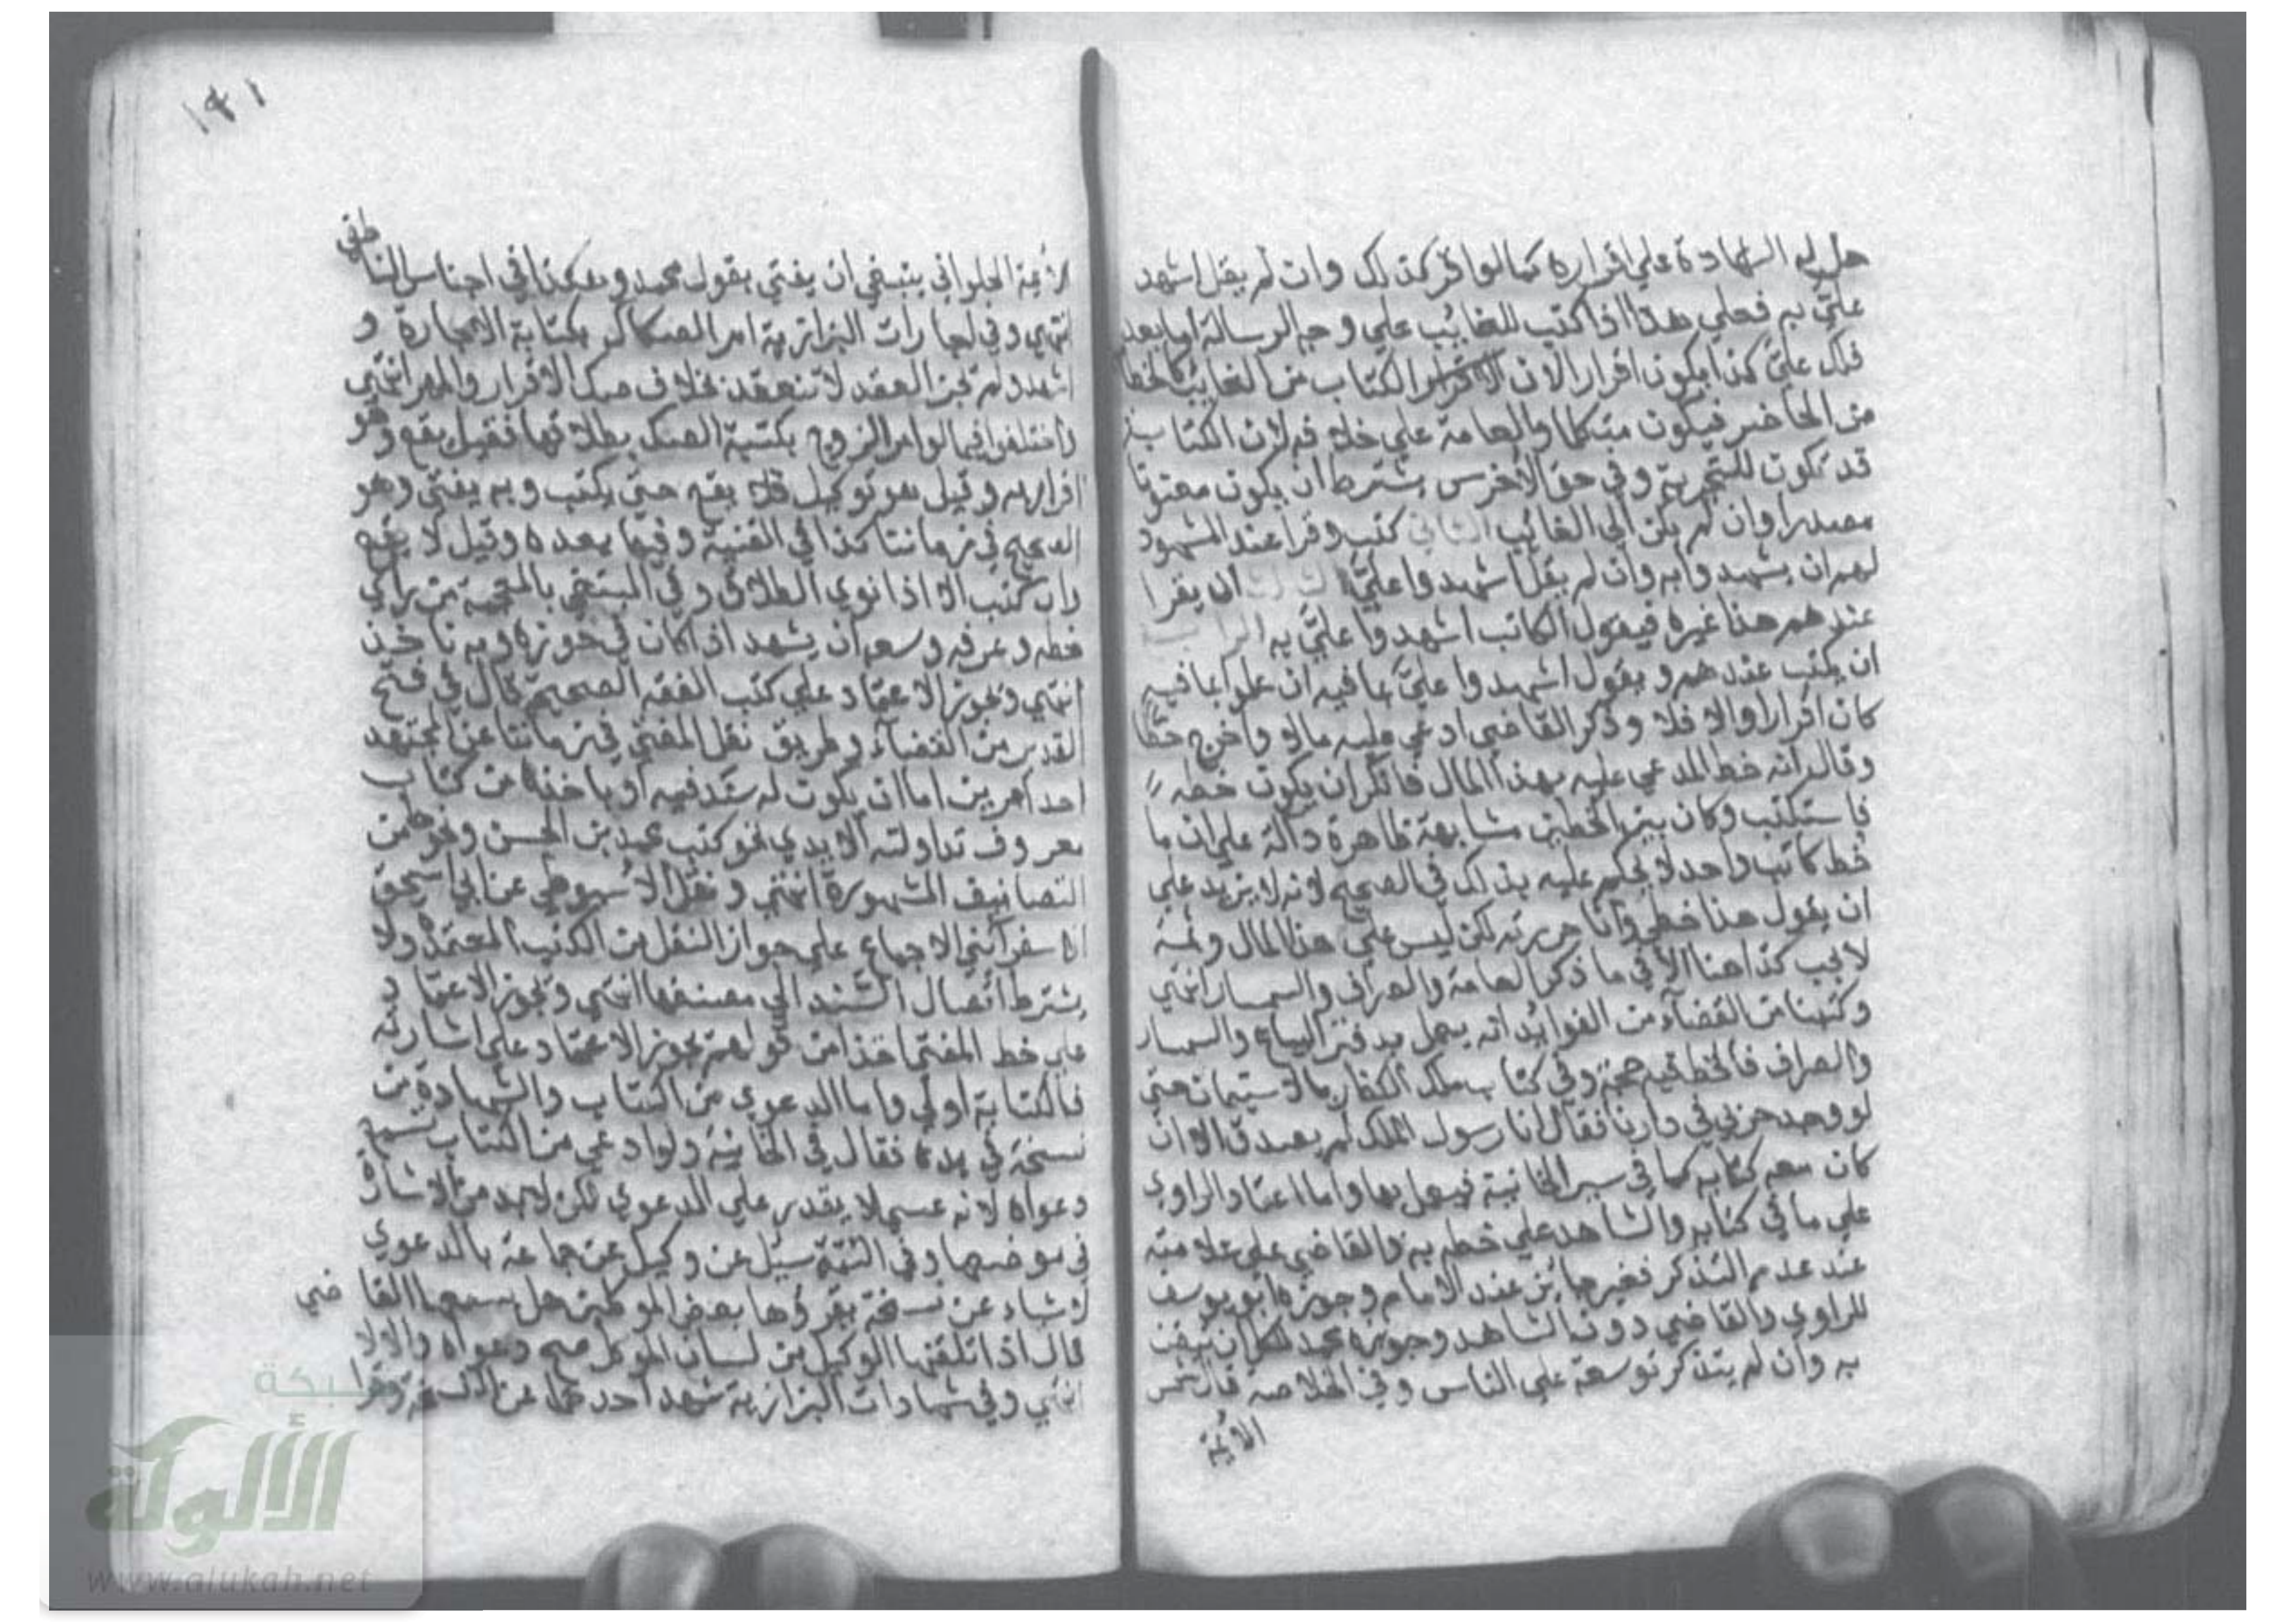 حل لهم الشهادة على اقراره كما لو اقر كذلك وان لم يقل اشهد
علي به فعلي هذا اذا كتب للغائب علي وجه الرسالة اما بعد
فلك علي كذا يكون اقرارا لان الكتاب من الغائب كالخطاب
من الحاضر فيكون متكلما والعامة علي خلافه لان الكتابة
قد تكون للتجربة وفي حق الاخرس يشترط ان يكون معنونا
مصدرا وان لم يكن الي الغائب الثاني كتب وقرا عند الشهود
لهم ان يشهدوا به وان لم يقل اشهدوا علي الثالث ان يقرا
عندهم هذا غيره فيقول الكاتب اشهدوا علي به الرابع
ان يكتب عندهم ويقول اشهدوا علي بما فيه ان علموا بما فيه
كان اقرارا والا فلا وذكر القاضي ادعي عليه مالا واخرج خطا
وقال انه خط المدعي عليه بهذا المال فانكر ان يكون خطه
فاستكتب وكان بين الخطين مشابهة ظاهرة دالة علي ان ما
خط كاتب واحد لا يحكم عليه بذلك في الصحيح لانه لا يزيد علي
ان يقول هذا خطي وانا حررته لكن ليس علي هذا المال وثمة
لا يجب كذا هنا الا في ما ذكر العامة والصراف والسمسار انتهي
وكتبنا من القضاء من الفوايد انه يعمل بدفتر البياع والسمسار
والصراف فالخط فيه حجة وفي كتاب ملك الكفار بالاستيمان حتي
لو وجد حربي في دارنا فقال انا رسول الملك لم يصدق الا ان
كان معه كتابه كما في سير الخانية فيعمل بها واما اعتماد الراوي
علي ما في كتابه والشاهد علي خطه به والقاضي علي علامته
عند عدم التذكر فغير جائز عند الامام وجوزه ابو يوسف
للراوي والقاضي دون الشاهد وجوزه محمد للكل ان تيقن
به وان لم يتذكر توسعة علي الناس وفي الخلاصة قال شمس
الائمة
١٩١
الائمة الحلواني ينبغي ان يفتي بقول محمد وهكذا في اجناس الناطفي
انتهي وفي اجارات البزازية امر الصكاك بكتابة الاجارة و
اشهد ولم يجز العقد لا تنعقد بخلاف صك الاقرار والمهر انتهي
واختلفوا فيما لو امر الزوج بكتبة الصك بطلاقها فقيل يقع وهو
اقرار به وقيل هو توكيل فلا يقع حتي يكتب وبه يفتي وهو
الصحيح في زماننا كذا في القنية وفيها بعده وقيل لا يقع
وان كتب الا اذا نوي الطلاق وفي المبتغي بالمعجمة من راي
خطه وعرفه وسعه ان يشهد اذا كان في حوزه وبه ناخذ
انتهي ويجوز الاعتماد علي كتب الفقه الصحيحة قال في فتح
القدير من القضاء وطريق نقل المفتي في زماننا عن المجتهد
احد امرين اما ان يكون له سند فيه او ياخذه من كتاب
معروف تداولته الايدي نحو كتب محمد بن الحسن ونحوها من
التصانيف المشهورة انتهي ونقل الاسيوطي عن ابي اسحق
الاسفرائني الاجماع علي جواز النقل من الكتب المعتمدة ولا
يشترط اتصال السند الي مصنفها انتهي ويجوز الاعتماد
علي خط المفتي اخذا من قولهم يجوز الاعتماد علي اشارته
فالكتابة اولي واما الدعوي من الكتاب والشهادة من
نسخة في يده فقال في الخانية ولو ادعي من الكتاب تسمع
دعواه لانه عسي لا يقدر علي الدعوي لكن لا بد من الاشارة
في موضعها وفي التتمة سئل عن وكيل عن جماعة بالدعوي
لاشياء عن نسخة يقرؤها بعض الموكلين هل يسمعها القاضي
قال اذا تلقنها الوكيل من لسان الموكل صح دعواه والا لا
انتهي وفي شهادات البزازية شهد احدهما عن النسخة وقرا
شبكة
الألوكة
www.alukah.net